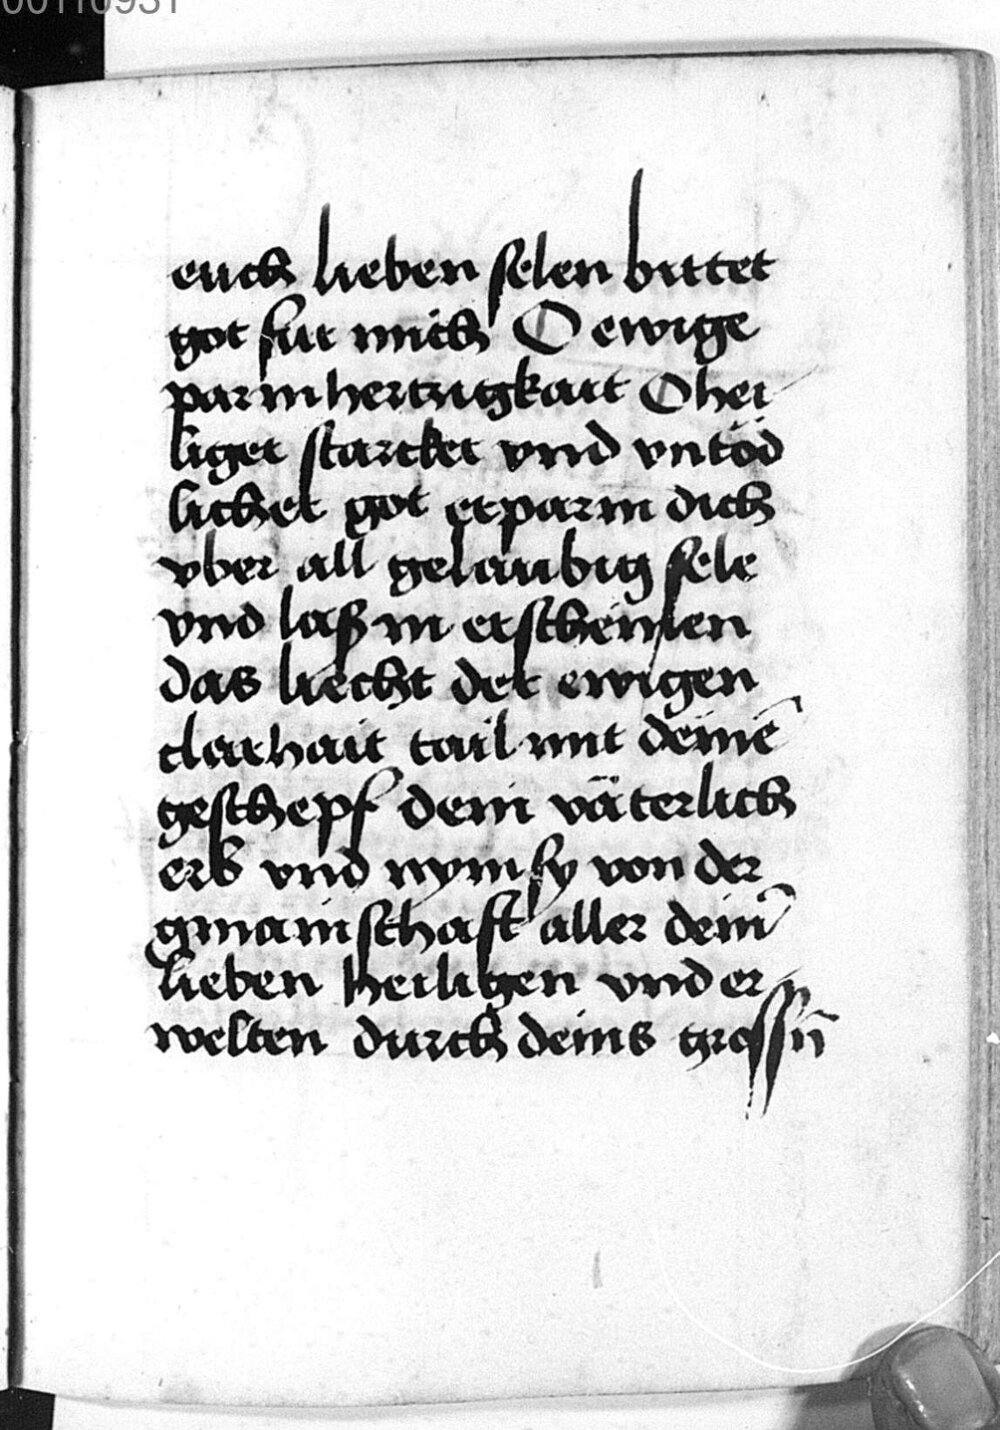 00110931
euch lieben selen bittet
got für mich O ewige
parmhertzigkait O hei
liger starcker vnd vntöd
licher got erparm dich
vber all gelaubig sele
vnd laß in erscheinen
das liecht der ewigen
clarhait tail mit deinē
geschepf dein väterlich
erb vnd nym sy von der
gmainschaft aller deinˀ
lieben heiligen vnd er
welten durch deins grossn̄